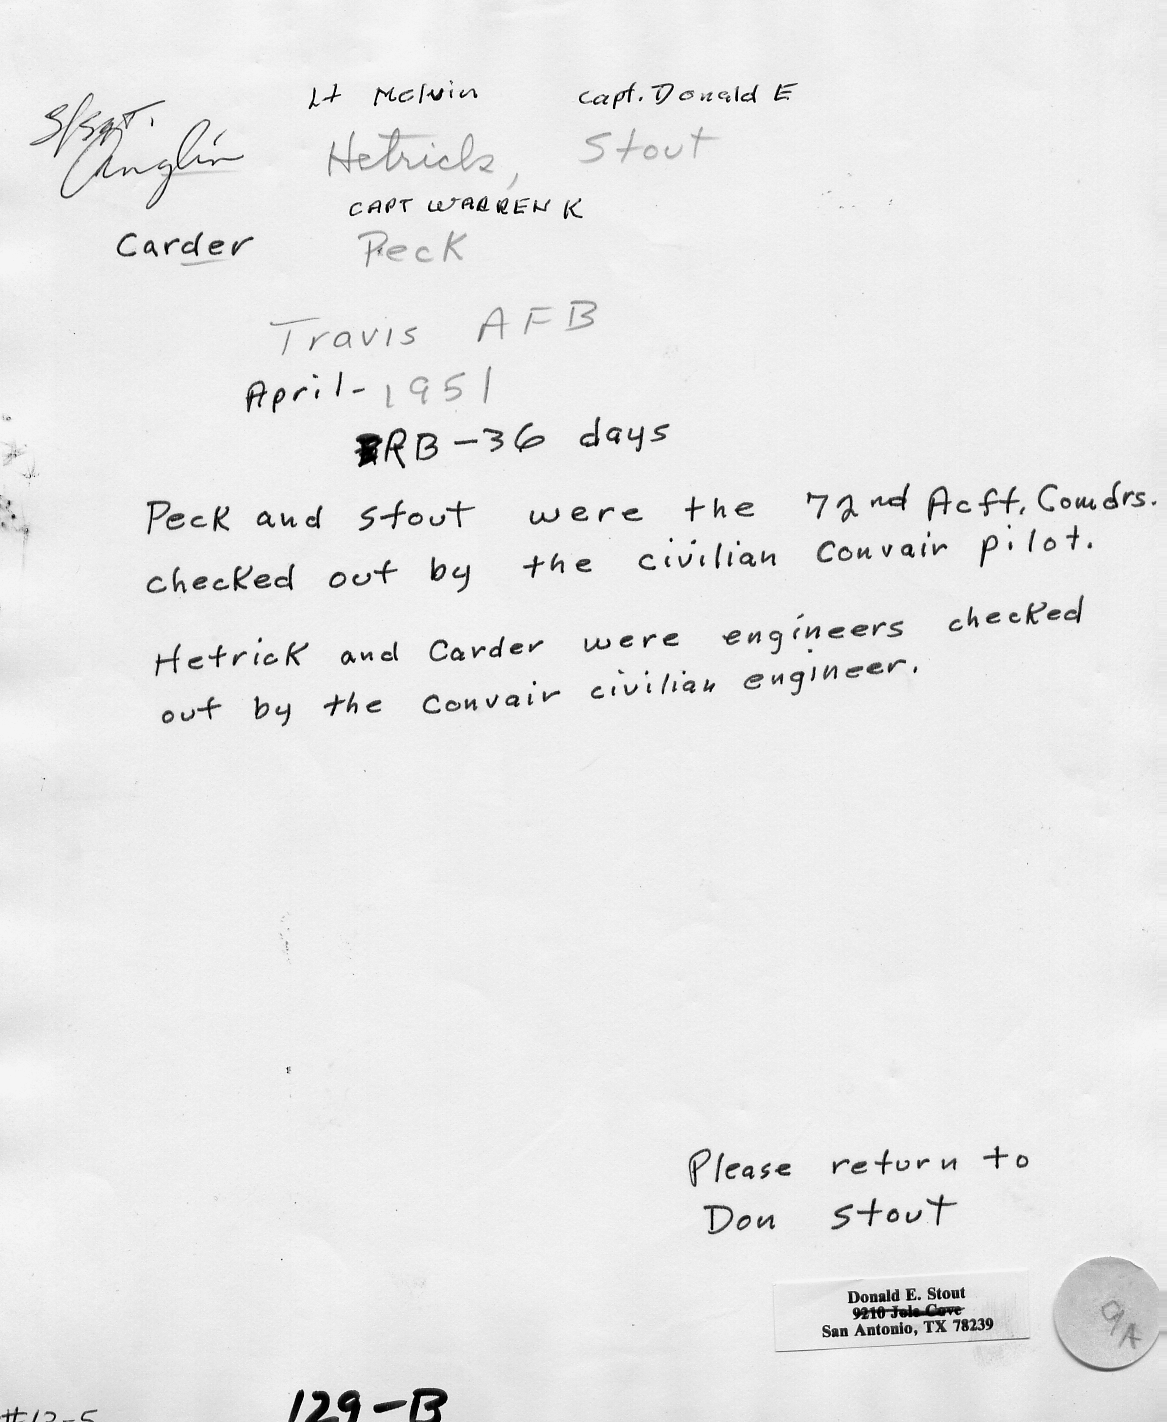 S/Sgt. Lt Melvin Capt. Donald E
Anglin Hetrick, Stout
CAPT WARREN K
Carder Peck
Travis AFB
April - 1951
RB - 36 days
Peck and Stout were the 72nd Acft. Comdrs.
checked out by the civilian Convair pilot.
Hetrick and Carder were engineers checked
out by the Convair civilian engineer.
Please return to
Don Stout
Donald E. Stout
9210 Jole Cove
San Antonio, TX 78239
9/A
129-B
#12-5